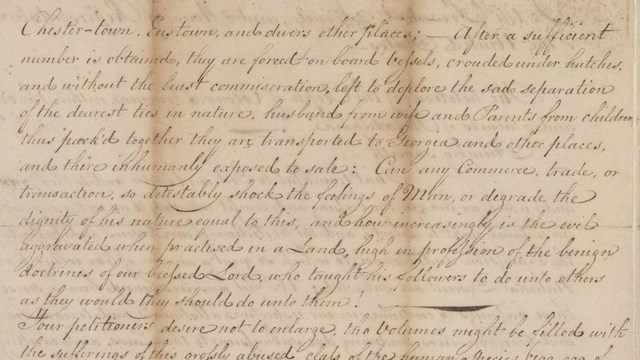 Chester-town, Eastown, and divers other places; — After a sufficient
number is obtained, they are forced on board vessels, crouded under hatches,
and without the least commiseration, left to deplore the sad separation
of the dearest ties in nature, husband from wife and Parents from children
thus pack'd together they are transported to Georgia and other places,
and there inhumanly exposed to sale: Can any Commerce, trade, or
transaction, so detestably shock the feelings of Man, or degrade the
dignity of his nature equal to this, and how increasingly is the evil
aggravated when practised in a Land, high in profession of the benign
doctrines of our blessed Lord, who taught his followers to do unto others
as they would they should do unto them!
Your petitioners desire not to enlarge, tho Volumes might be filled with
the sufferings of this grossly abused class of the human species